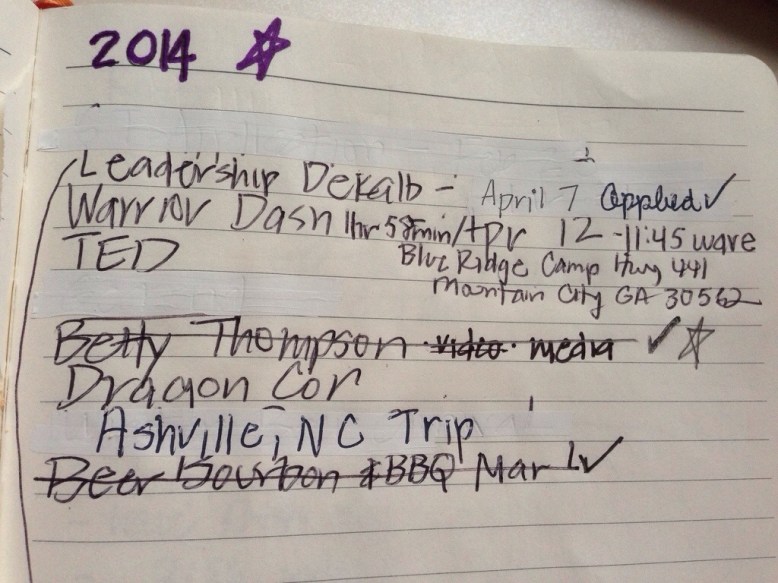 2014
Leadership Dekalb - April 7 applied ✓
Warrior Dash 1hr 58min/Apr 12 - 11:45 wave
TED Blue Ridge Camp Hwy 441
Mountain City GA 30562
Betty Thompson video. media ✓
Dragon Con
Ashville, NC Trip
Beer Bourbon & BBQ Mar 1 ✓